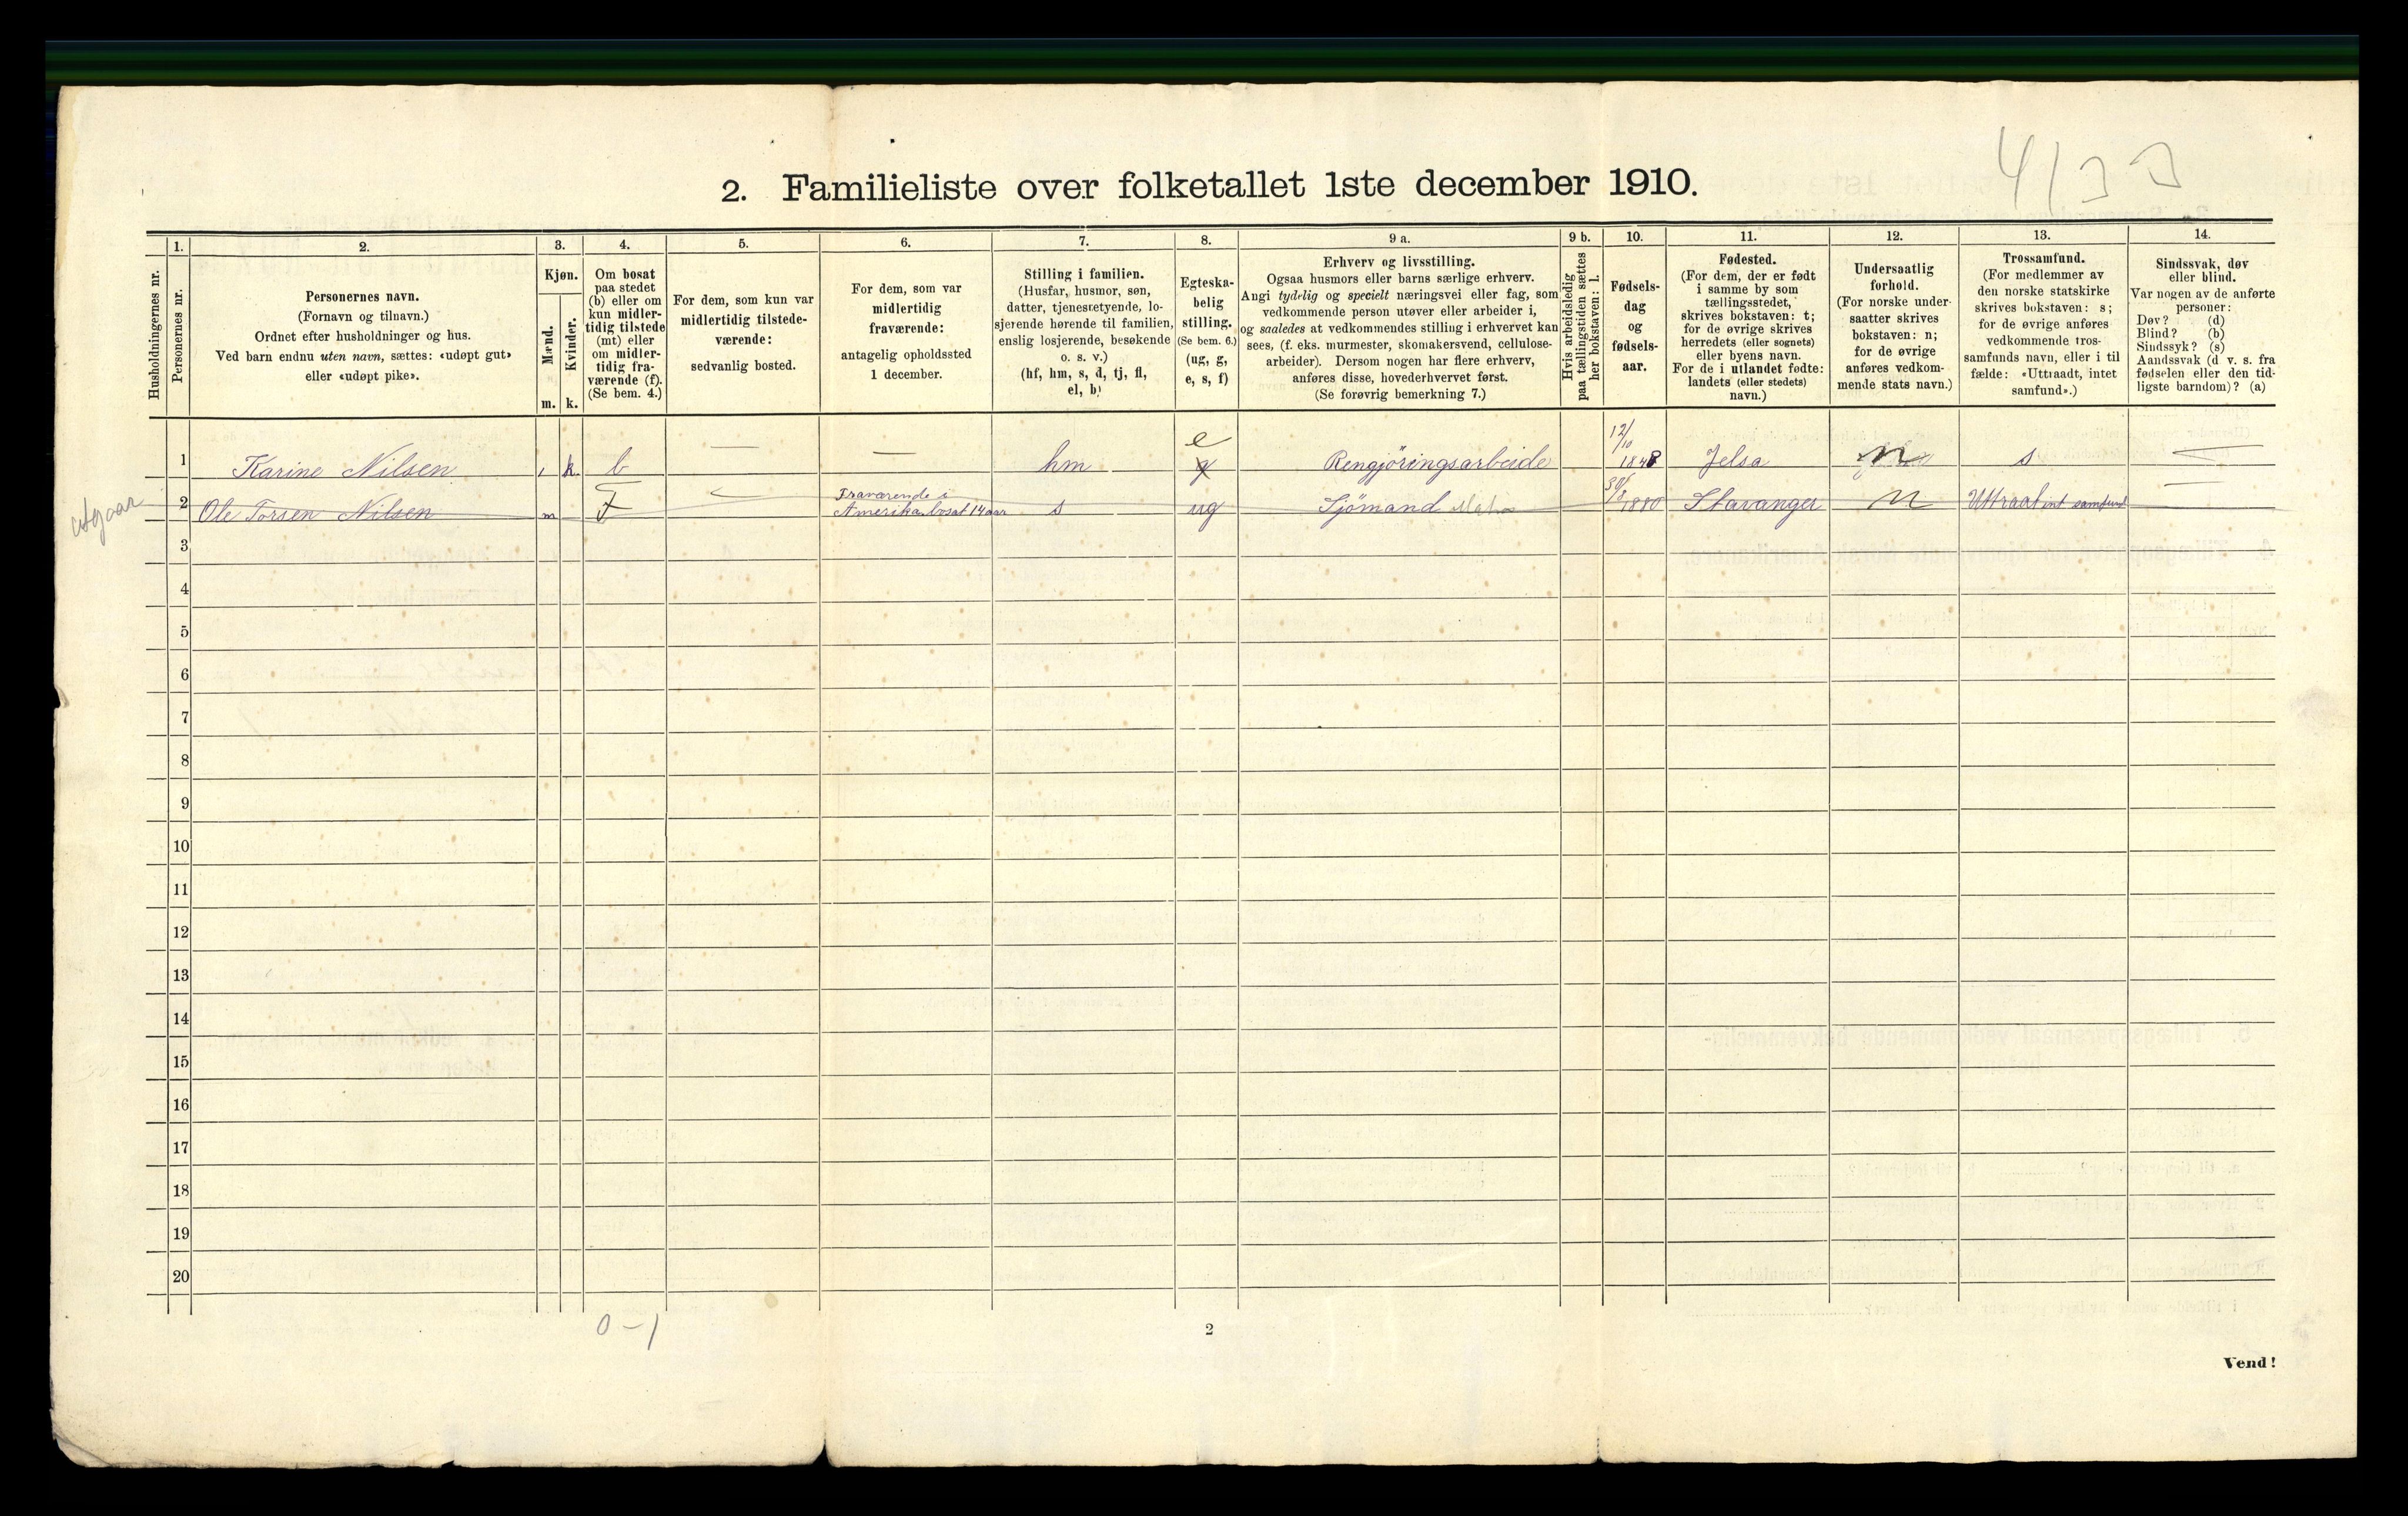 4133
2. Familieliste over folketallet 1ste december 1910.
Husholdningernes nr.
1.
Personernes nr.
2.
Personernes navn.
(Fornavn og tilnavn.)
Ordnet efter husholdninger og hus.
Ved barn endnu uten navn, sættes: «udøpt gut»
eller «udøpt pike».
3.
Kjøn.
Mænd.
Kvinder.
m. k.
4.
Om bosat
paa stedet
(b) eller om
kun midler-
tidig tilstede
(mt) eller
om midler-
tidig fra-
værende (f).
(Se bem. 4.)
5.
For dem, som kun var
midlertidig tilstede-
værende:
sedvanlig bosted.
6.
For dem, som var
midlertidig
fraværende:
antagelig opholdssted
1 december.
7.
Stilling i familien.
(Husfar, husmor, søn,
datter, tjenesretyende, lo-
sjerende hørende til familien,
enslig losjerende, besøkende
o. s. v.)
(hf, hm, s, d, tj, fl,
el, b)
8.
Egteska-
belig
stilling.
(Se bem. 6.)
(ug, g,
e, s, f)
9 a.
Erhverv og livsstilling.
Ogsaa husmors eller barns særlige erhverv.
Angi tydelig og specielt næringsvei eller fag, som
vedkommende person utøver eller arbeider i,
og saaledes at vedkommendes stilling i erhvervet kan
sees, (f. eks. murmester, skomakersvend, cellulose-
arbeider). Dersom nogen har flere erhverv,
anføres disse, hovederhvervet først.
(Se forøvrig bemerkning 7.)
9 b.
Hvis arbeidsledig
paa tællingstiden sættes
her bokstaven: l.
10.
Fødsels-
dag
og
fødsels-
aar.
11.
Fødested.
(For dem, der er født
i samme by som
tællingsstedet,
skrives bokstaven: t;
for de øvrige skrives
herredets (eller sognets)
eller byens navn.
For de i utlandet fødte:
landets (eller stedets)
navn.)
12.
Undersaatlig
forhold.
(For norske under-
saatter skrives
bokstaven: n;
for de øvrige
anføres vedkom-
mende stats navn.)
13.
Trossamfund.
(For medlemmer av
den norske statskirke
skrives bokstaven: s;
for de øvrige anføres
vedkommende tros-
samfunds navn, eller i til
fælde: «Uttraadt, intet
samfund».)
14.
Sindssvak, døv
eller blind.
Var nogen av de anførte
personer:
Døv? (d)
Blind? (b)
Sindssyk? (s)
Aandssvak (d v. s. fra
fødselen eller den tid-
ligste barndom)? (a)
1 Karine Nilsen k b — — hm e g Rengjöringsarbeide 12/10 1848 Jelsa n s —
utgaar 2 Ole Torsen Nilsen m f — Fraværende i Amerika bosat 14 aar s ug Sjömand 30/8 1880 Stavanger n Uttraat int samfund —
3
4
5
6
7
8
9
10
11
12
13
14
15
16
17
18
19
20
0-1
2
Vend!